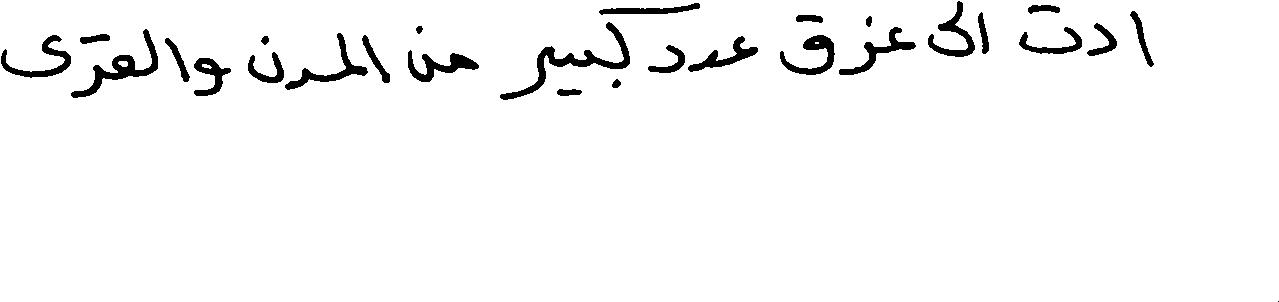 ادت الى غرق عدد كبير من المدن والقرى